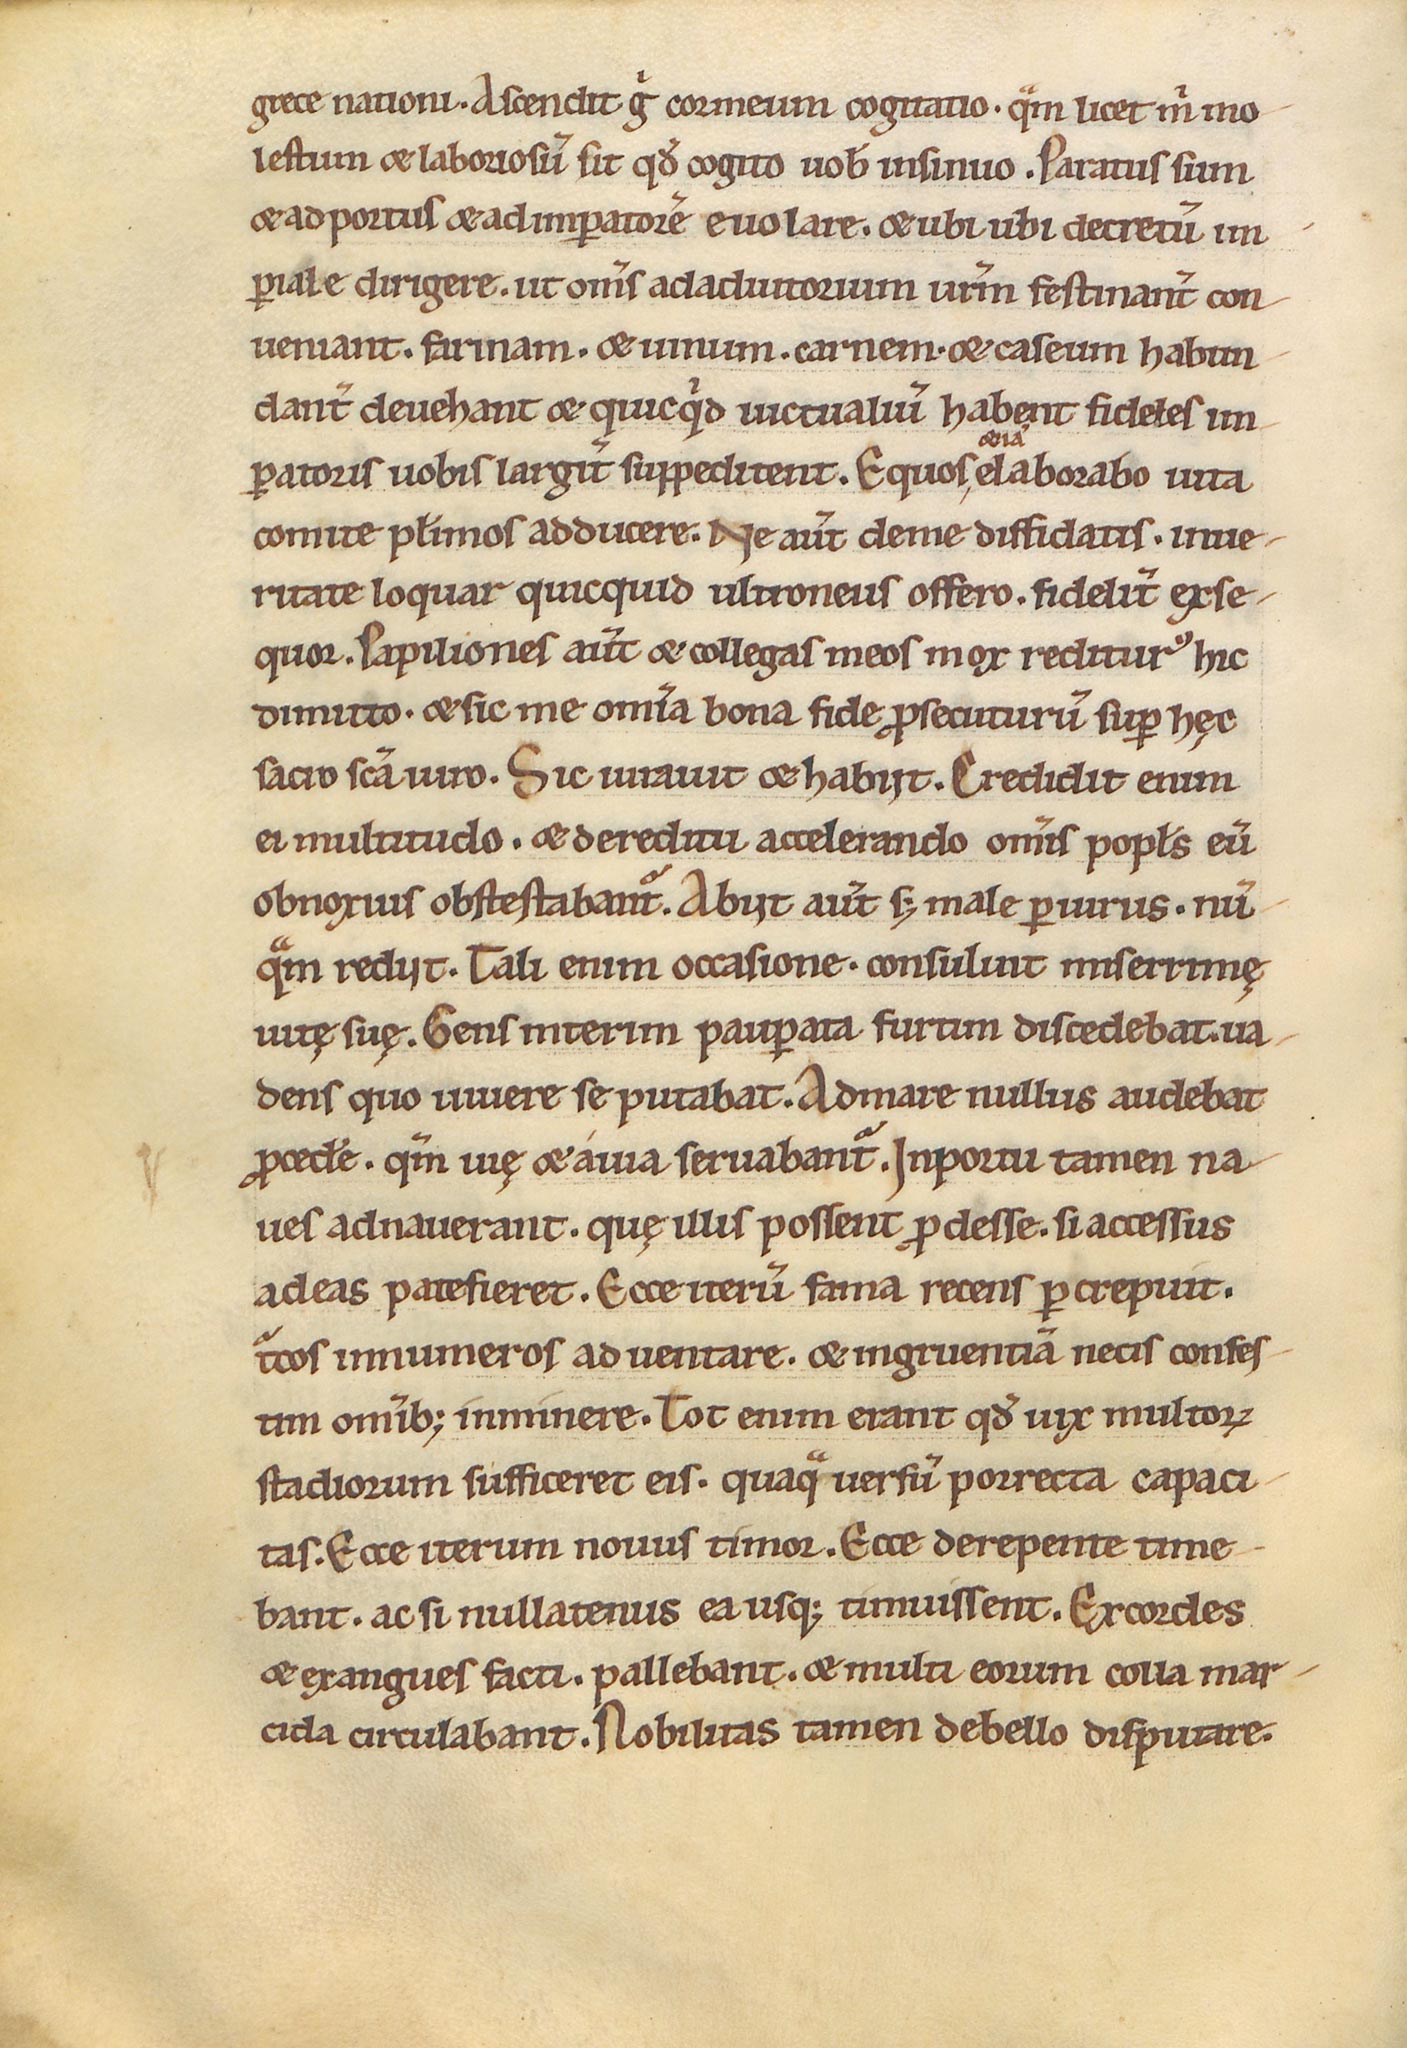 grece nationi. Ascendit g̍ cormeum cogitatio. qm̄ licet m̄ mo-
lestum & laboriosū sit qđ cogito uob̄ insinuo. Paratus sum
& ad portus & ad imꝑatorē euolare. & ubi ubi decretū im-
ꝑiale dirigere. ut om̄s adadiutorium ur̄m festinant̄ con-
ueniant. farinam. & uinum. carnem. & caseum habun-
dant̄ deuehant & quicqͥd uictualiū habent fideles im-
ꝑatoris uobis largit̄ suppeditent. Equos, \etiā/ elaborabo uita
comite pl̄imos adducere. Ne aūt deme diffidatis. inue-
ritate loquar quicquid ultroneus offero. fidelit̄ exse-
quor. Papiliones aūt & collegas meos mox rediturꝰ hic
dimitto. & sic me om̄ia bona fide ꝓsecuturū suꝑ hęc
sacro scā iuro. Sic iurauit & habijt. Credidit enim
ei multitudo. & dereditu accelerando om̄is popl̄s eū
obnoxius obstestabant᷑. Abijt aūt s; male ꝑiurus. nū-
qᵃm redijt. Tali enim occasione. consuluit miserrimę
uitę suę. Gens interim pauꝑata furtim discedebat. ua-
dens quo uiuere se putabat. Admare nullus audebat
ꝓcedēre. qm̄ uię & áuia seruabant᷑. Inportu tamen na-
ues adnauerant. quę illis possent ꝓdesse. si accessus
adeas patefieret. Ecce iterū fama recens ꝑcrepuit.
t᷑cos innumeros aduentare. & ingruentiā necis confes-
tim om̄ib; inminere. Tot enim erant qđ uix multoꝝ
stadiorum sufficeret eis. quaqᵃ uersū porrecta capaci-
tas. Ecce iterum nouus timor. Ecce derepente time-
bant. ac si nullatenus ea usq; timuissent. Excordes
& exangues facti. pallebant. & multi eorum colla mar-
cida circulabant. Nobilitas tamen debello disputare.